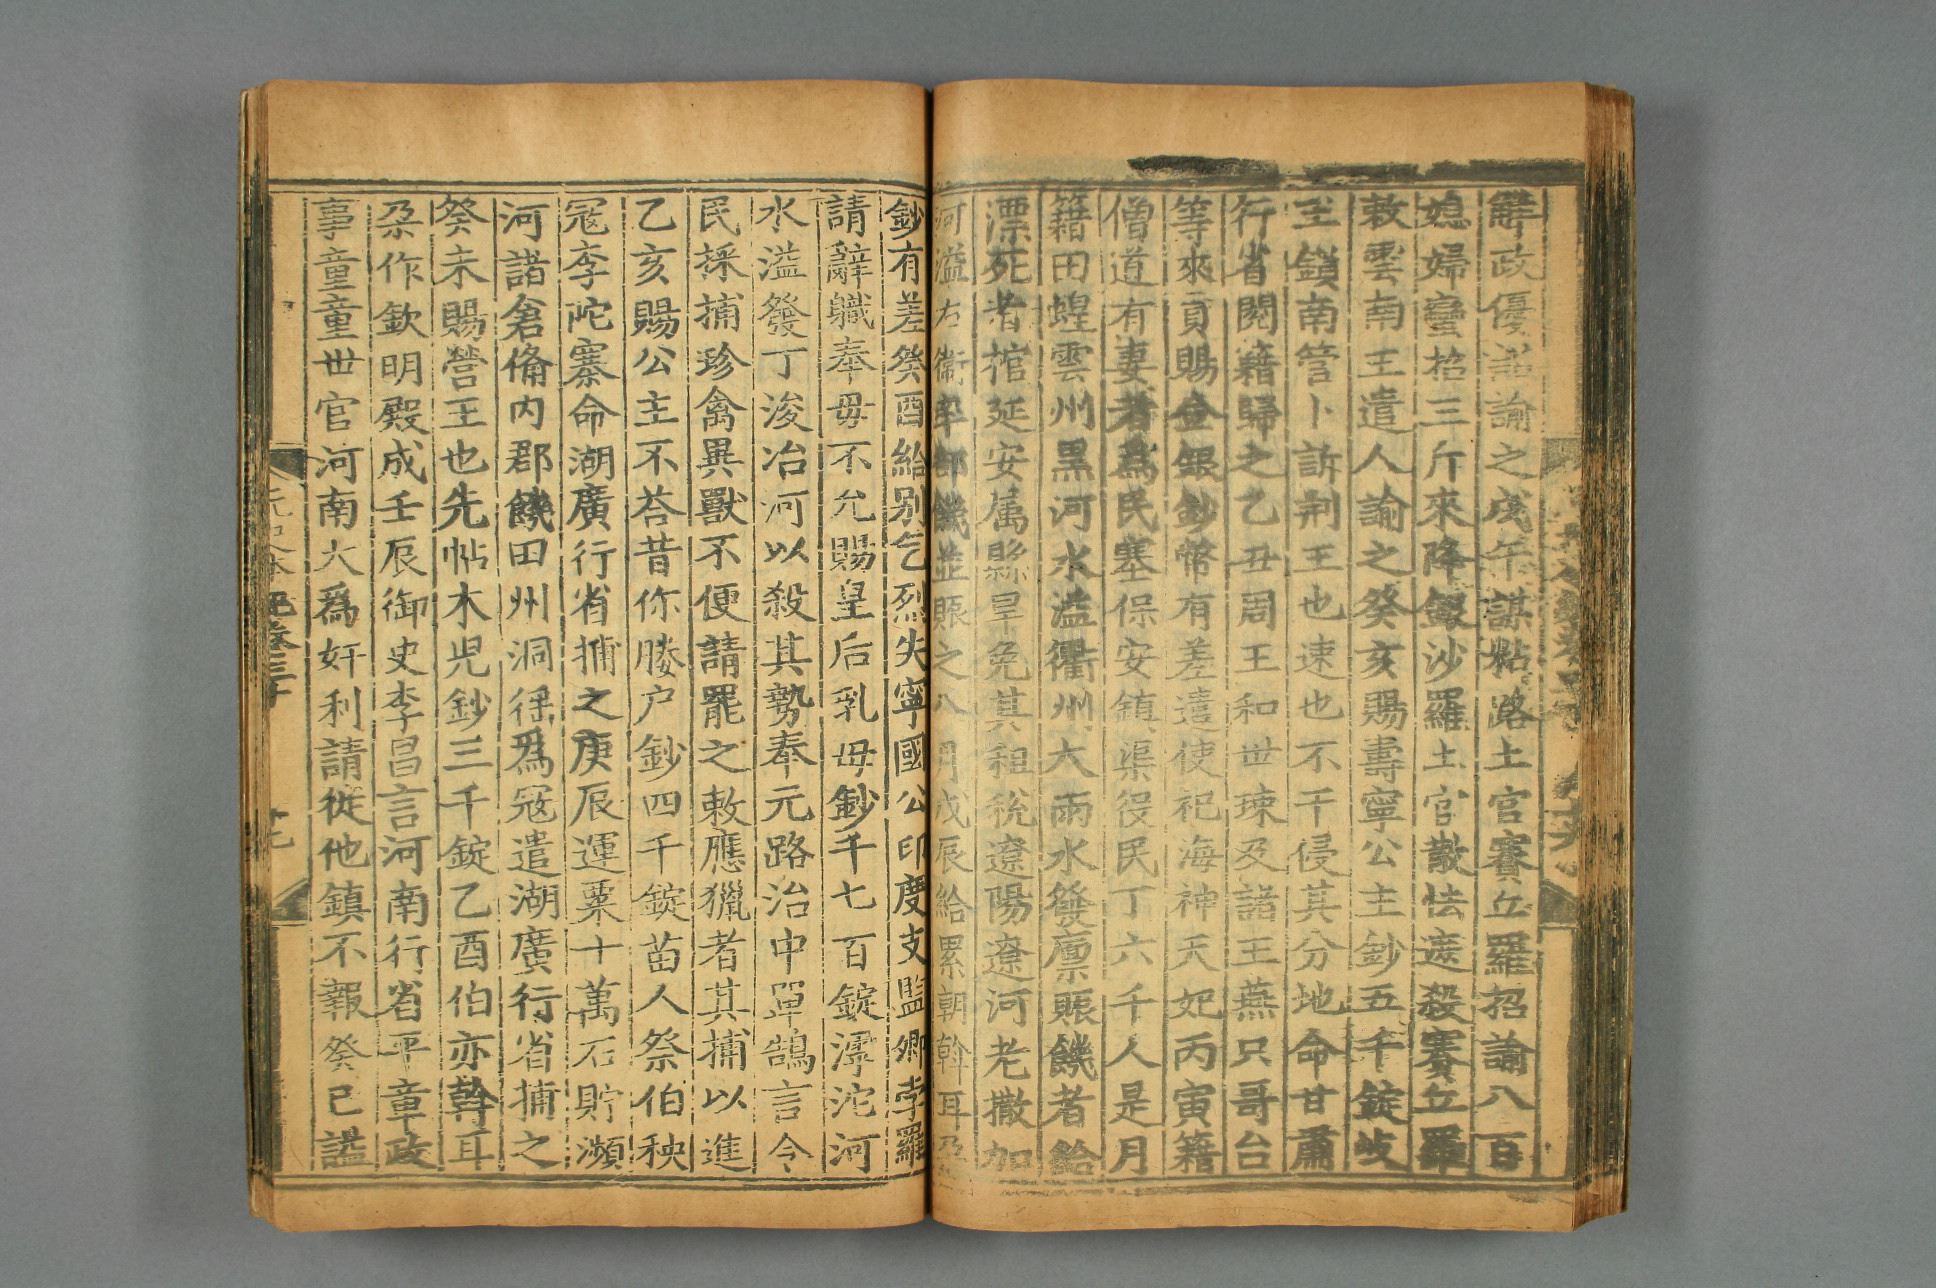 解政優詔諭之戊午謀粘路土官賽丘羅招諭八百
媳婦蠻招三斤來降銀沙羅土官散怯遮殺賽丘羅
敕雲南王遣人諭之癸亥賜壽寧公主鈔五千錠岐
王鎖南管卜訴荆王也速也不干侵其分地命甘肅
行省閱籍歸之乙丑周王和世㻋及諸王燕只哥台
等來貢賜金銀鈔幣有差遣使祀海神天妃丙寅籍
僧道有妻者爲民塞保安鎮渠役民丁六千人是月
籍田蝗雲州黑河水溢衢州大雨水發廪賑饑者給
漂死者棺延安属縣旱免其租稅遼陽遼河老撒加
河溢右衛率部饑並賑之八月戊辰給累朝斡耳朶
鈔有差癸酉給别乞烈失寧國公印度支監卿孛羅
請辭職奉母不允賜皇后乳母鈔千七百錠滹沱河
水溢發丁浚冶河以殺其勢奉元路治中單鵠言令
民採捕珍禽異獸不便請罷之敕應獵者其捕以進
乙亥賜公主不荅昔你媵户鈔四千錠苗人祭伯秧
冦李陀寨命湖廣行省捕之庚辰運粟十萬石貯瀕
河諸倉俻内郡饑田州洞猺爲冦遣湖廣行省捕之
癸未賜營王也先帖木児鈔三千錠乙酉伯亦斡耳
朶作欽明殿成壬辰御史李昌言河南行省平章政
事童童世官河南大爲奸利請徙他鎮不報癸巳諡